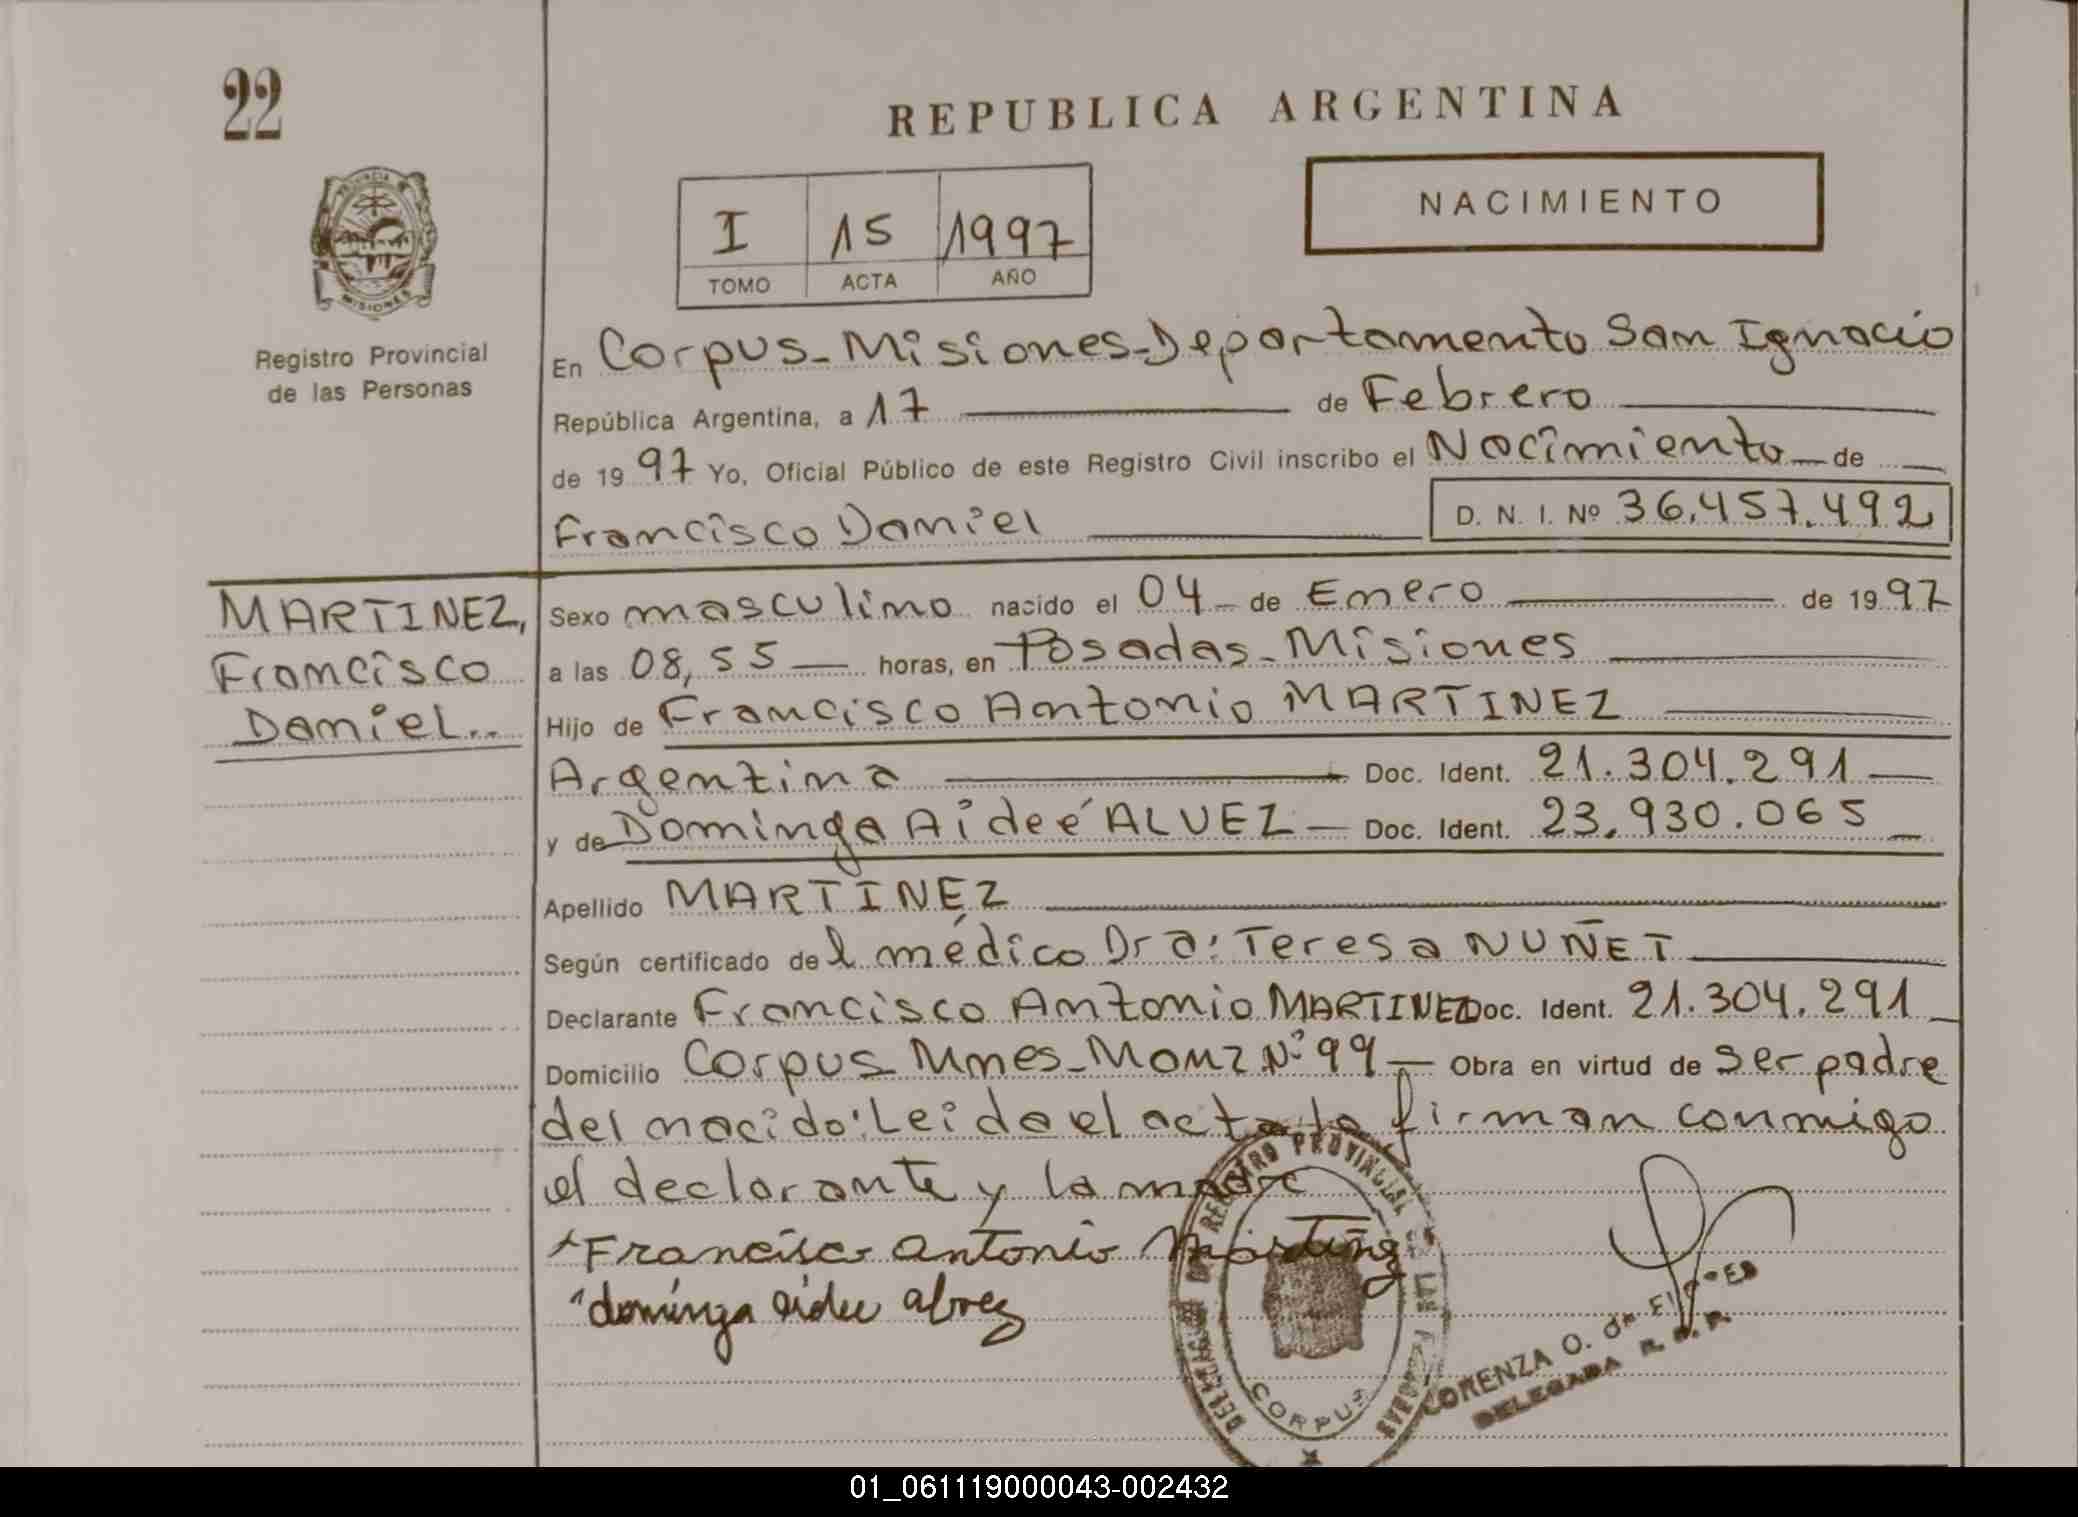 22
REPUBLICA ARGENTINA
PROVINCIA DE
MISIONES
Registro Provincial
de las Personas
I 15 1997
TOMO ACTA AÑO
NACIMIENTO
En Corpus-Misiones-Departamento San Ignacio
República Argentina, a 17 de Febrero
de 1997 Yo, Oficial Público de este Registro Civil inscribo el Nacimiento de
Francisco Daniel D. N. I. Nº 36.457.492
MARTINEZ,
Francisco
Daniel..
Sexo masculino nacido el 04 de Enero de 1997
a las 08,55 horas, en Posadas-Misiones
Hijo de Francisco Antonio MARTINEZ
Argentina Doc. Ident. 21.304.291
y de Dominga Aideé ALVEZ Doc. Ident. 23.930.065
Apellido MARTINEZ
Según certificado del médico Dra: Teresa NUÑET
Declarante Francisco Antonio MARTINEZ Doc. Ident. 21.304.291
Domicilio Corpus Mnes-Monz Nº 99 Obra en virtud de ser padre
del nacido: Leida el acta la firman conmigo
el declarante y la madre
Francisco Antonio Martinez
dominga aidee alvez
DELEGACION DEL REGISTRO PROVINCIAL DE LAS PERSONAS
CORPUS
LORENZA O. de
DELEGADA R. P. P.
01_061119000043-002432